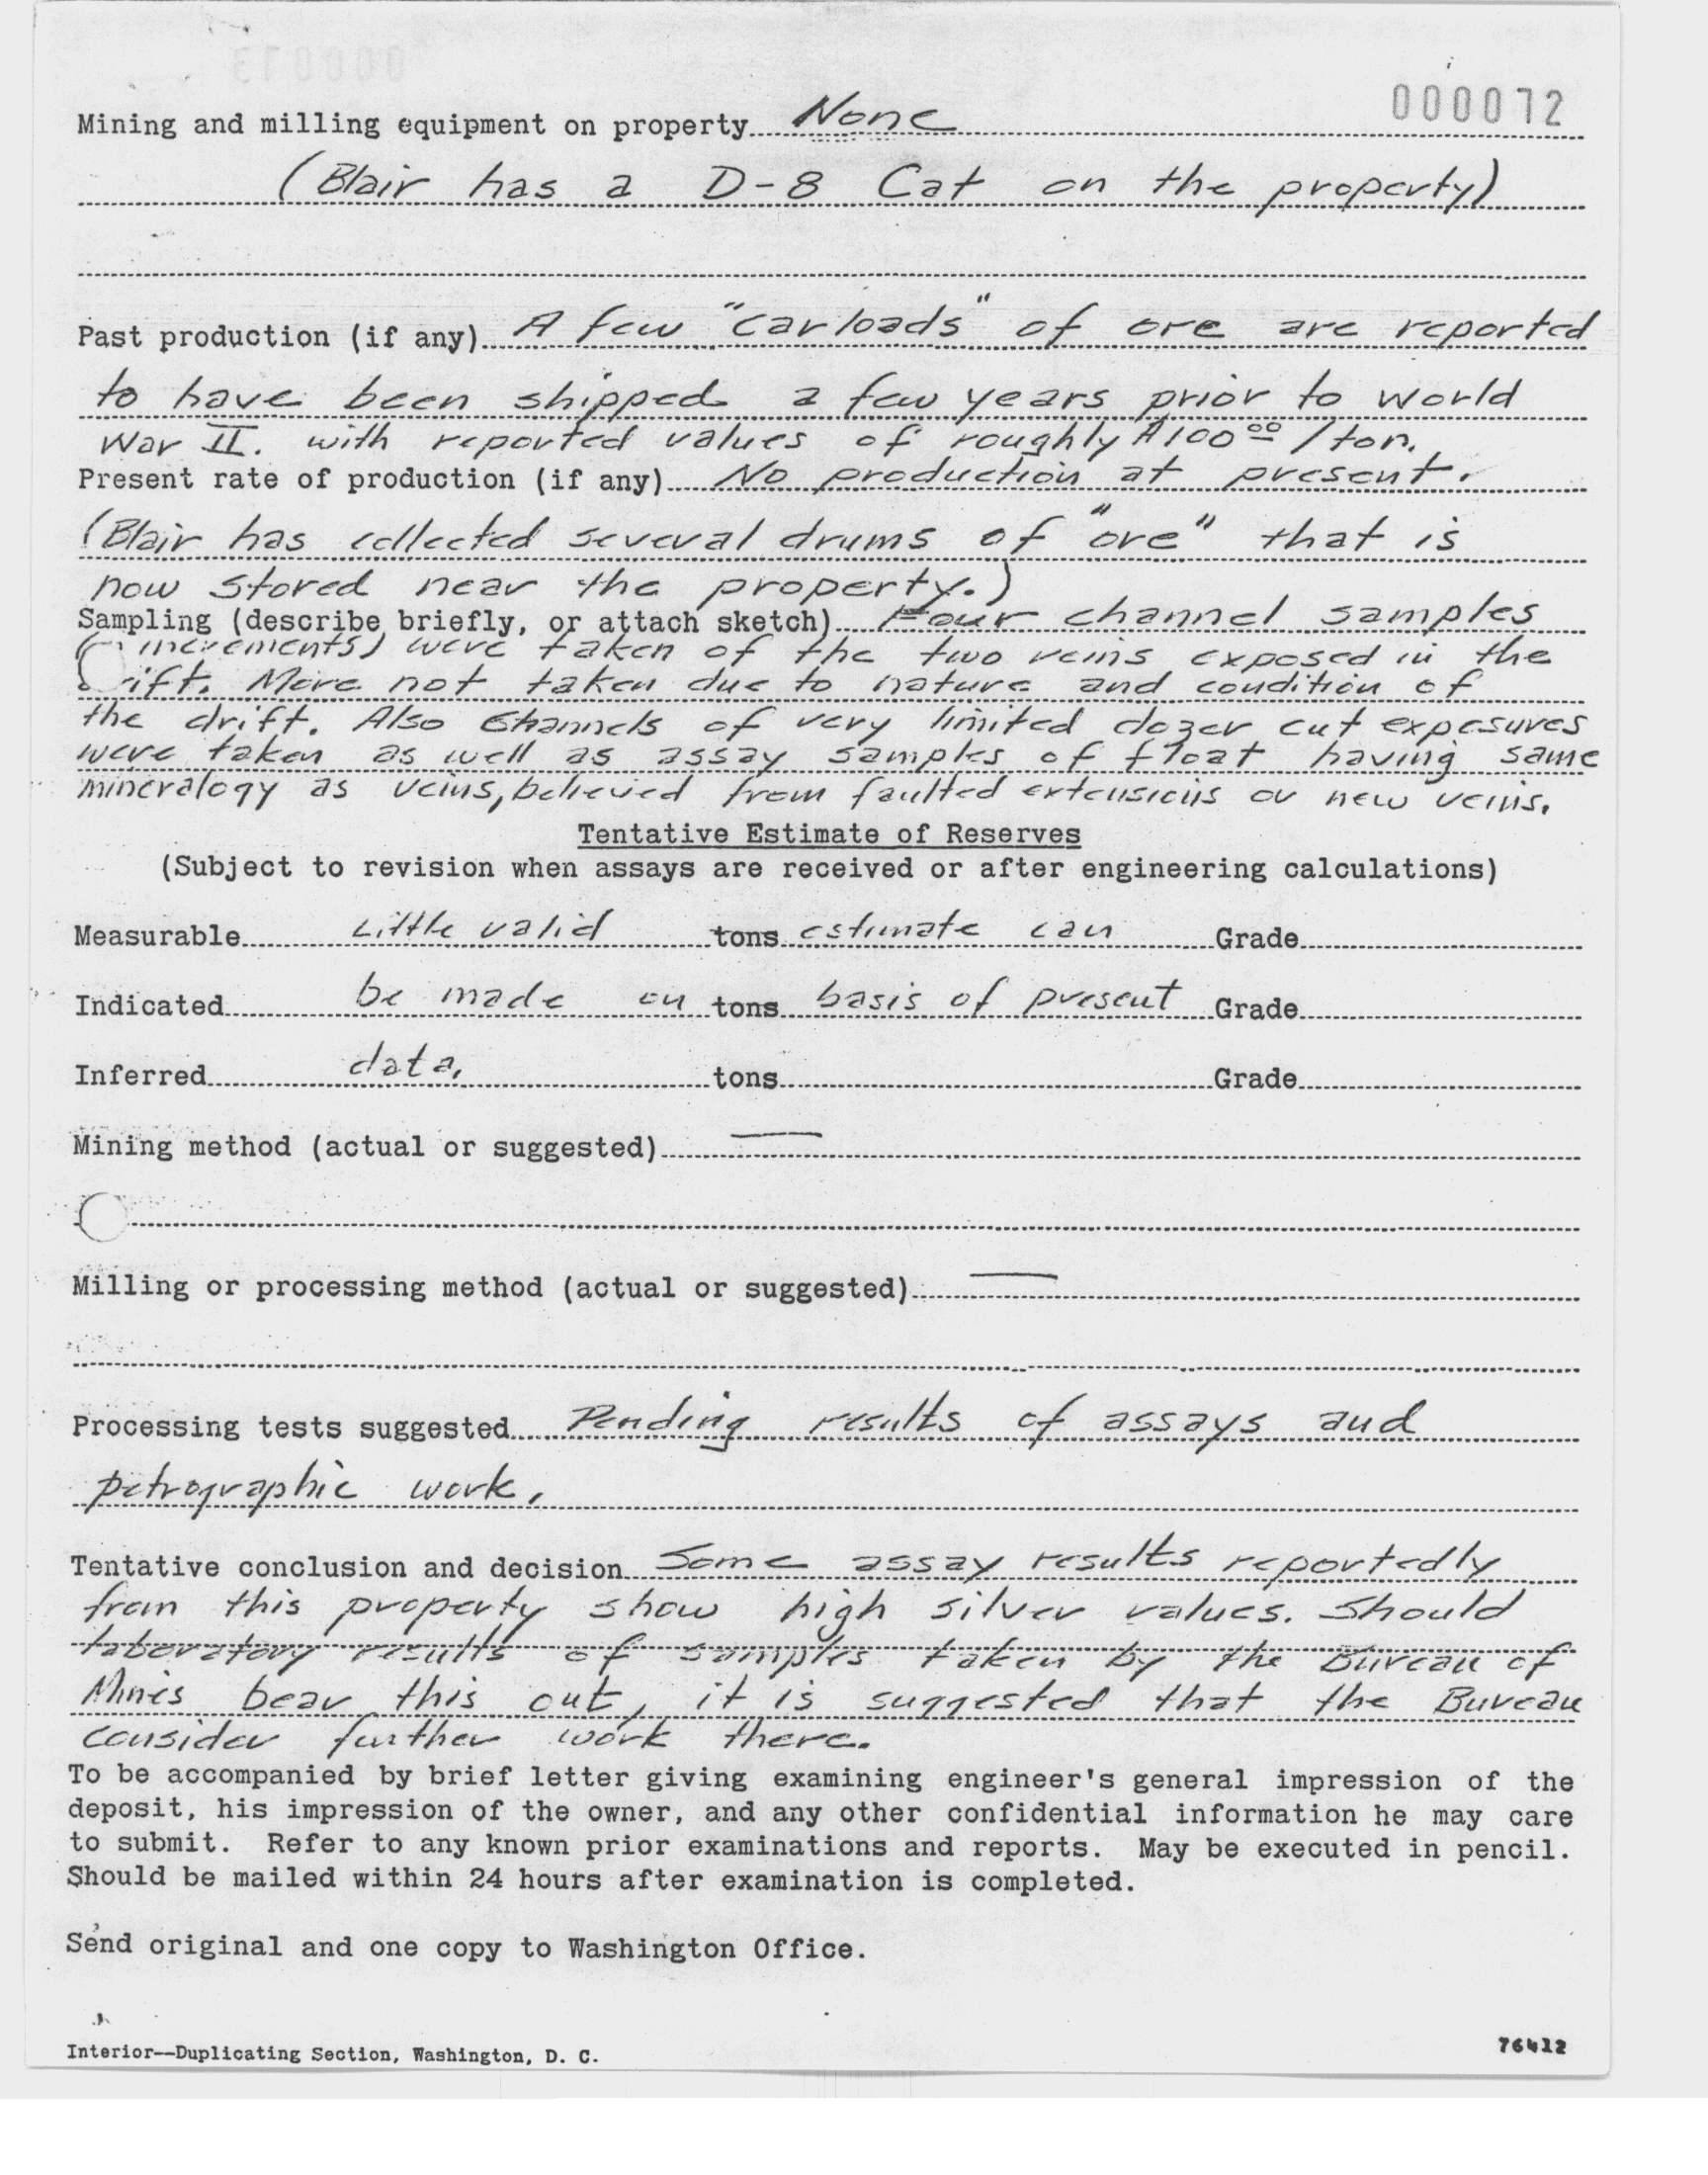 000072
Mining and milling equipment on property None
(Blair has a D-8 Cat on the property)
Past production (if any) A few "carloads" of ore are reported
to have been shipped a few years prior to World
War II. with reported values of roughly $100.00/ton.
Present rate of production (if any) No production at present.
(Blair has collected several drums of "ore" that is
now stored near the property.)
Sampling (describe briefly, or attach sketch) Four channel samples
increments) were taken of the two veins exposed in the
drift. More not taken due to nature and condition of
the drift. Also Channels of very limited dozer cut exposures
were taken as well as assay samples of float having same
mineralogy as veins, believed from faulted extensions or new veins.
Tentative Estimate of Reserves
(Subject to revision when assays are received or after engineering calculations)
Measurable Little valid tons estimate can Grade
Indicated be made on tons basis of present Grade
Inferred data. tons Grade
Mining method (actual or suggested) —
Milling or processing method (actual or suggested) —
Processing tests suggested Pending results of assays and
petrographic work.
Tentative conclusion and decision Some assay results reportedly
from this property show high silver values. Should
laboratory results of samples taken by the Bureau of
Mines bear this out, it is suggested that the Bureau
consider further work there.
To be accompanied by brief letter giving examining engineer's general impression of the
deposit, his impression of the owner, and any other confidential information he may care
to submit. Refer to any known prior examinations and reports. May be executed in pencil.
Should be mailed within 24 hours after examination is completed.
Send original and one copy to Washington Office.
Interior--Duplicating Section, Washington, D. C.
76412